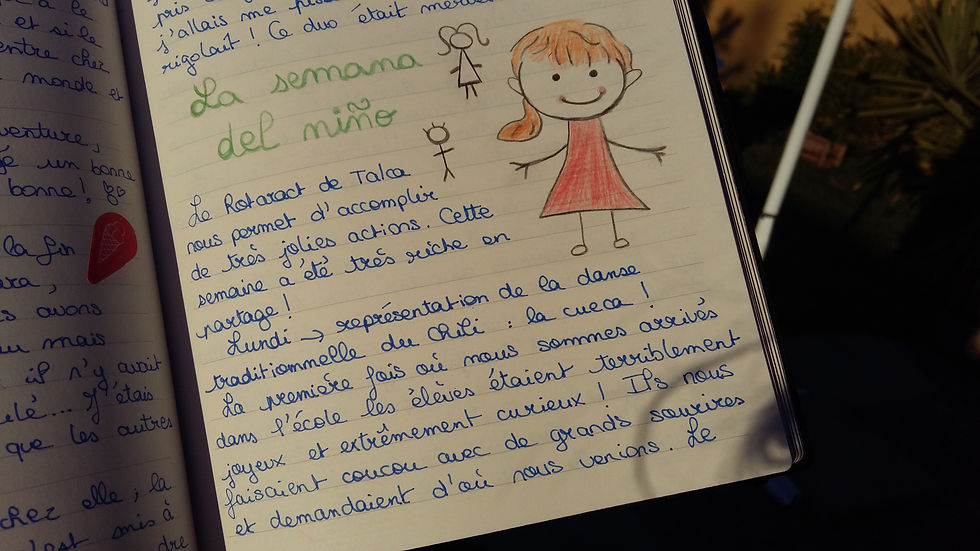 à le
et si le
entre chez
monde et
un bonne
bonne !
la fin
avons
mais
il n'y avait
J'étais
que les autres
chez elle ; la
mis à
pris
j'allais me
rigolait ! Ce duo était
La semana
del niño
Le Rotaract de Talca
nous permet d'accomplir
de très jolies actions. Cette
semaine a été très riche en
partage !
Lundi → représentation de la danse
traditionnelle du Chili : la cueca !
La première fois où nous sommes arrivés
dans l'école les élèves étaient terriblement
joyeux et extrêmement curieux ! Ils nous
faisaient coucou avec de grands sourires
et demandaient d'où nous venions. Le